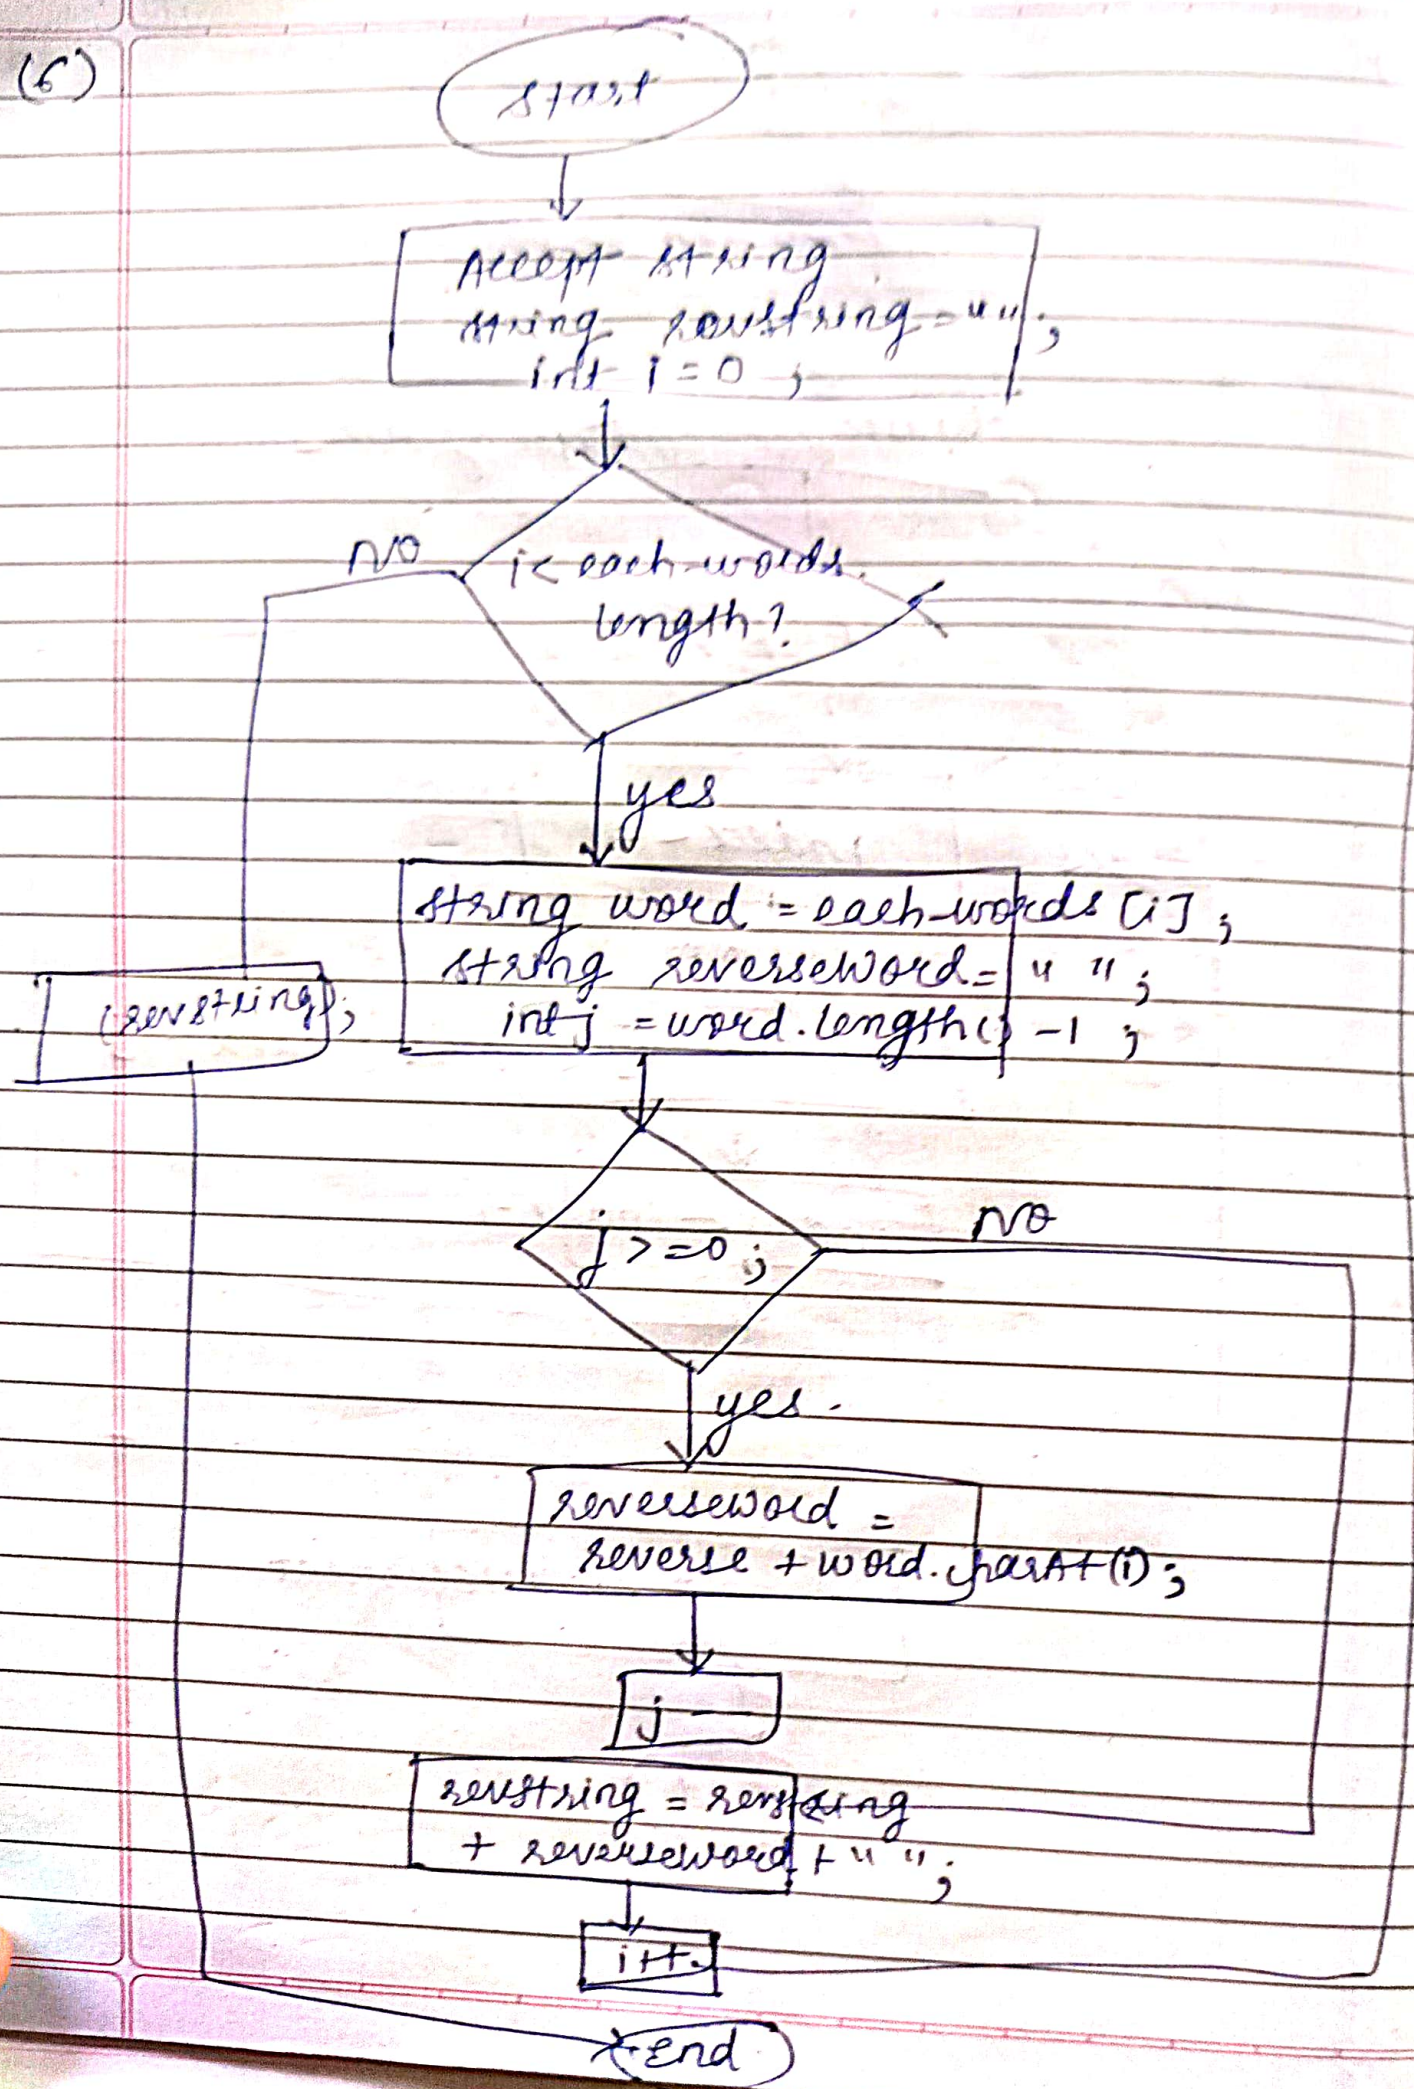 (6)
Start
Accept string
string revstring = "";
int i = 0 ;
NO
i< each-words.
length?
yes
string word = each-words [i] ;
string reverseWord = " " ;
int j = word.length() -1 ;
(revstring);
j >=0 ;
NO
yes.
reverseword =
reverse + word.charAt(i) ;
j --
revstring = revstring
+ reverseword + " " ;
i++
End